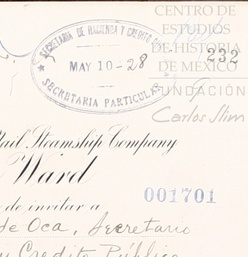 CENTRO DE
ESTUDIOS
DE HISTORIA
DE MEXICO
232
FUNDACIÓN
Carlos Slim
SECRETARIA DE HACIENDA Y CREDITO P
MAY 10-28
SECRETARIA PARTICULAR
Mail Steamship Company
Ward
001701
de invitar a
de Oca, Secretario
y Credito Público